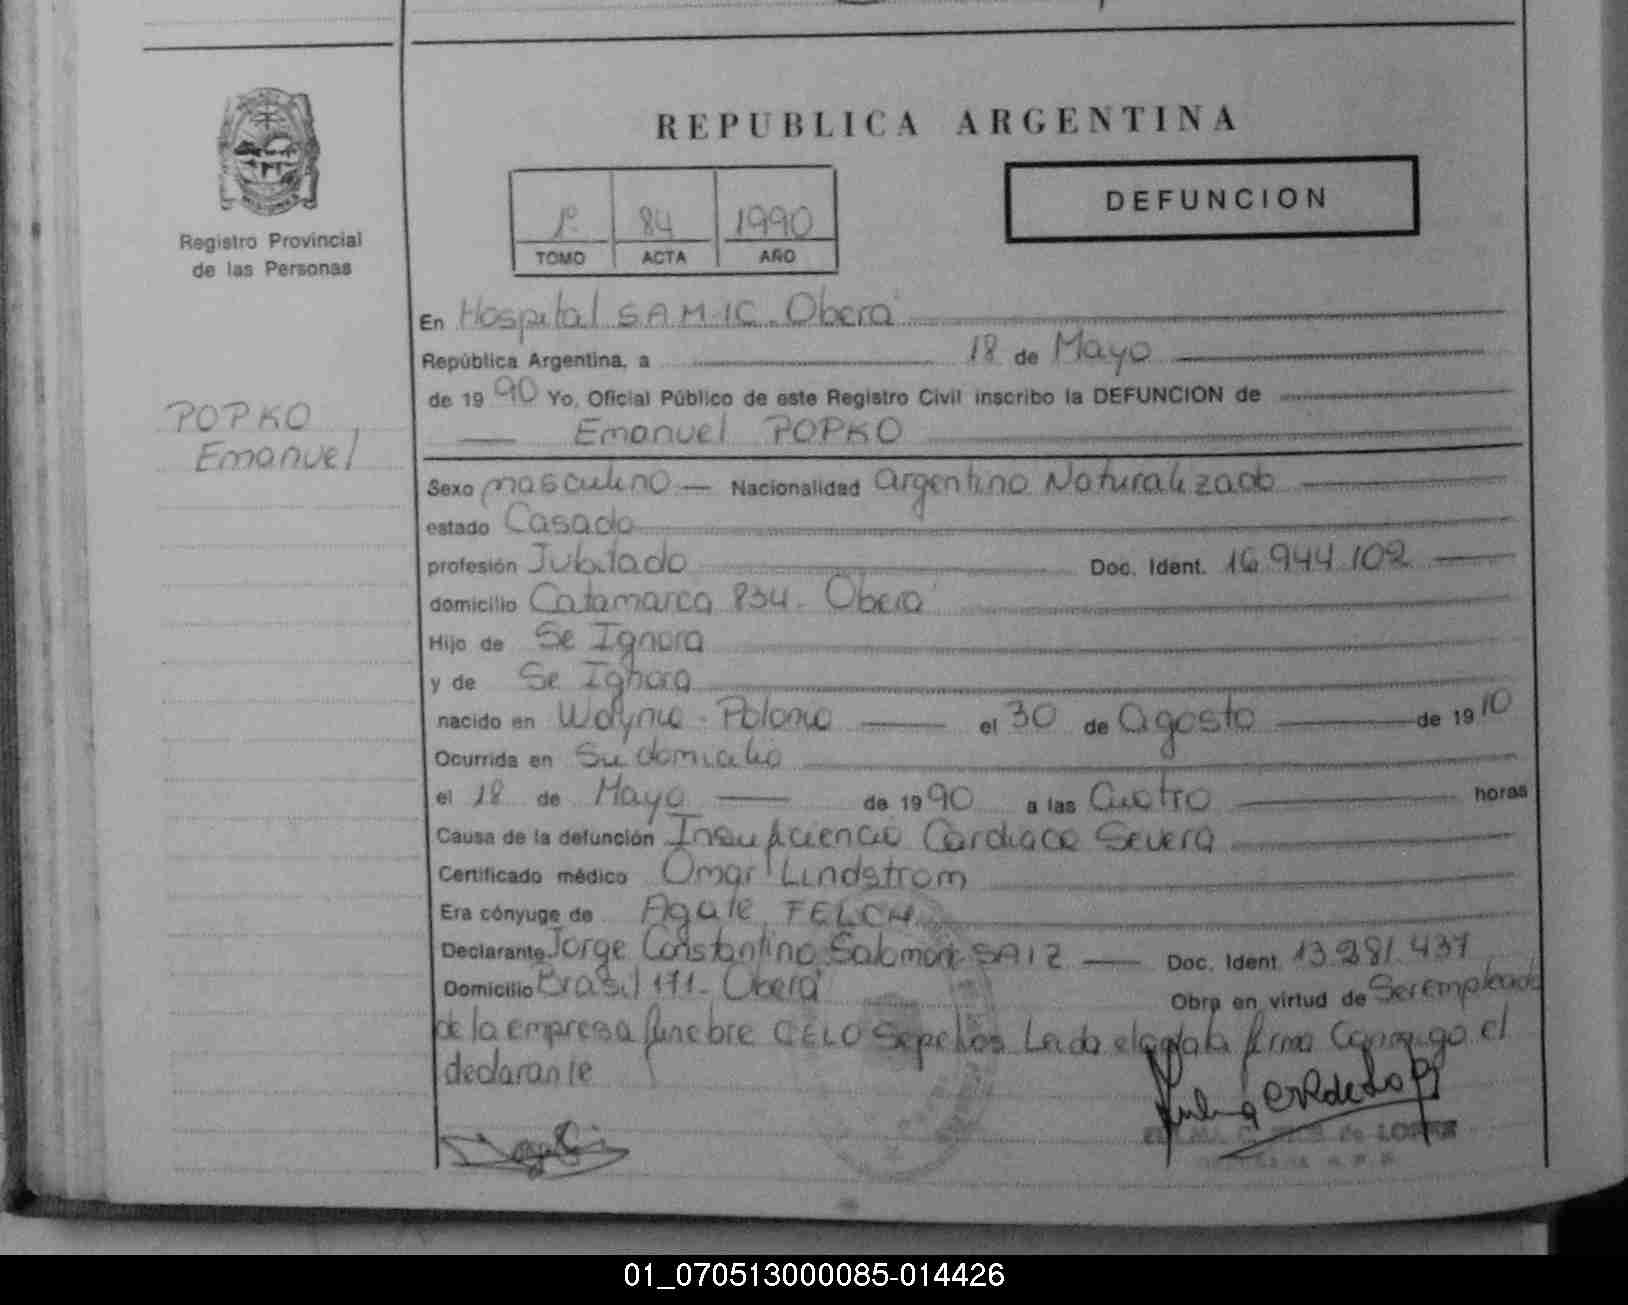 REPUBLICA ARGENTINA
DEFUNCION
1º 84 1990
TOMO ACTA AÑO
Registro Provincial
de las Personas
POPKO
Emanuel
En Hospital SAMIC - Oberá
República Argentina, a 18 de Mayo
de 1990 Yo, Oficial Público de este Registro Civil inscribo la DEFUNCION de
Emanuel POPKO
Sexo masculino - Nacionalidad Argentino Naturalizado
estado Casado
profesión Jubilado Doc. Ident. 16.944.102
domicilio Catamarca 834 - Oberá
Hijo de Se Ignora
y de Se Ignora
nacido en Wolynie - Polonia el 30 de Agosto de 1910
Ocurrida en Su domicilio
el 18 de Mayo de 1990 a las Cuatro horas
Causa de la defunción Insuficiencia Cardiaca Severa
Certificado médico Omar Lindstrom
Era cónyuge de Agate FELCH
Declarante Jorge Constantino Salomón SAIZ Doc. Ident. 13.281.437
Domicilio Brasil 171 - Oberá Obra en virtud de Ser empleado
de la empresa funebre CELO Sepelios Leida el acta la firma Conmigo el
declarante
de LOPEZ
01_070513000085-014426